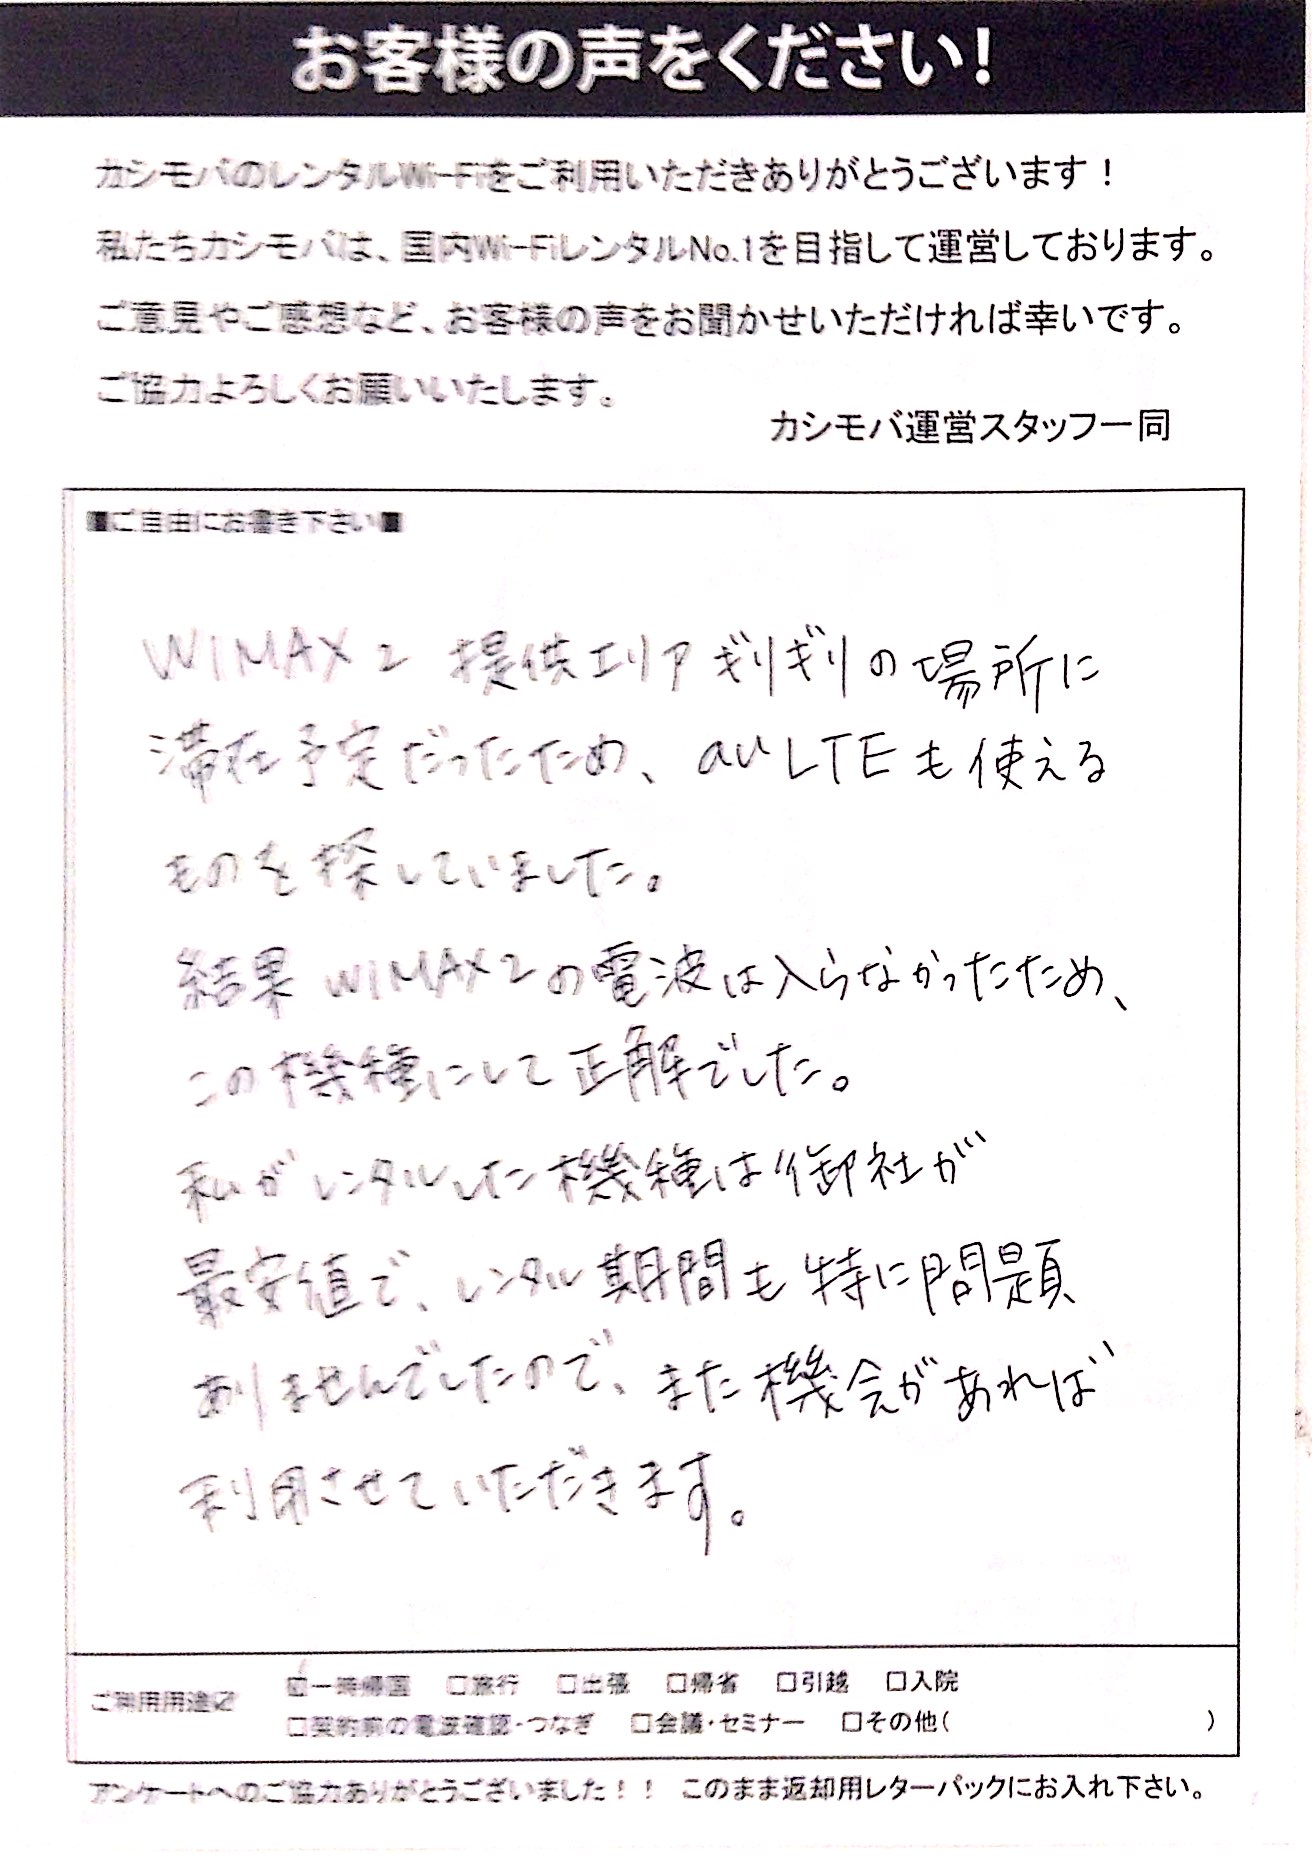 お客様の声をください!
カシモバのレンタルWi-Fiをご利用いただきありがとうございます！
私たちカシモバは、国内Wi-FiレンタルNo.1を目指して運営しております。
ご意見やご感想など、お客様の声をお聞かせいただければ幸いです。
ご協力よろしくお願いいたします。
カシモバ運営スタッフ一同
■ご自由にお書き下さい■
WIMAX2 提供エリアギリギリの場所に
滞在予定だったため、au LTEも使える
ものを探していました。
結果 WIMAX2の電波は入らなかったため、
この機種にして正解でした。
私がレンタルした機種は御社が
最安値で、レンタル期間も特に問題
ありませんでしたので、また機会があれば
利用させていただきます。
ご利用用途☑ ☑一時帰国 □旅行 □出張 □帰省 □引越 □入院
□契約前の電波確認・つなぎ □会議・セミナー □その他( )
アンケートへのご協力ありがとうございました！！ このまま返却用レターパックにお入れ下さい。